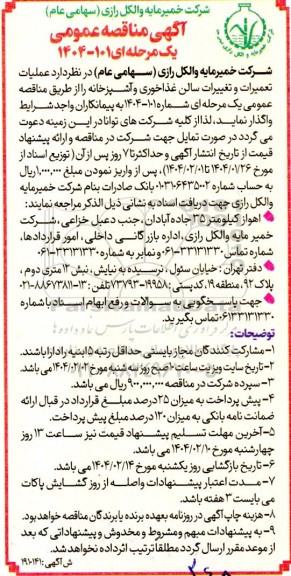 شرکت خمیرمایه والکل رازی (سهامی عام)
آگهی مناقصه عمومی
یک مرحله ای ۱۰۱-۱۴۰۴
شرکت خمیرمایه والکل رازی (سهامی عام) در نظر دارد عملیات
تعمیرات و تغییرات سالن غذاخوری و آشپزخانه را از طریق مناقصه
عمومی یک مرحله ای شماره ۱۰۱-۱۴۰۴ به پیمانکاران واجد شرایط
واگذار نماید، لذا از کلیه شرکت های توانا در این زمینه دعوت
می گردد در صورت تمایل جهت شرکت در مناقصه و ارائه پیشنهاد
قیمت از تاریخ انتشار آگهی و حداکثر تا ۷ روز پس از آن (توزیع اسناد از
مورخ ۱۴۰۴/۰۱/۲۶ تا ۱۴۰۴/۰۲/۰۱)، پس از واریز نمودن مبلغ ۱,۰۰۰,۰۰۰ ریال
به حساب شماره ۰۱۰۳۱۰۶۴۳۵۰۰۲ بانک صادرات بنام شرکت خمیرمایه
والکل رازی جهت دریافت اسناد به نشانی ذیل الذکر مراجعه نمایند:
اهواز کیلومتر ۳۵ جاده آبادان، جنب دعبل خزاعی، شرکت
خمیر مایه والکل رازی، اداره بازرگانی داخلی، امور قراردادها،
شماره تماس ۳۳۱۳۱۳۳۰-۰۶۱ و نمابر به شماره ۳۳۱۳۱۳۳۰-۰۶۱
دفتر تهران: خیابان سئول، نرسیده به نیایش، نبش ۱۲ متری دوم،
پلاک ۹۲، منطقه ۱۹، کدپستی: ۱۹۹۵۸-۷۳۷۹۳ تلفن: ۱۳-۸۸۶۷۳۸۱۱-۰۲۱
جهت پاسخگویی به سوالات و رفع ابهام اسناد با شماره
۰۶۱۳۳۱۳۱۳۳۰ تماس بگیرید.
توضیحات:
۱- مشارکت کنندگان مجاز بایستی حداقل رتبه ۵ ابنیه را دارا باشند.
۲- تاریخ سایت ویزیت ساعت ۱۰ صبح روز سه شنبه مورخ ۱۴۰۴/۰۲/۰۲ می باشد.
۳- سپرده شرکت در مناقصه ۹۰۰,۰۰۰,۰۰۰ ریال می باشد.
۴- پیش پرداخت به میزان ۲۵ درصد مبلغ قرارداد در قبال ارائه
ضمانت نامه بانکی به میزان ۱۲۰ درصد مبلغ پیش پرداخت.
۵- آخرین مهلت تسلیم پیشنهاد قیمت نیز ساعت ۱۳ روز
چهارشنبه مورخ ۱۴۰۴/۰۲/۱۰ می باشد.
۶- تاریخ بازگشایی روز یکشنبه مورخ ۱۴۰۴/۰۲/۱۴ می باشد.
۷- مدت اعتبار پیشنهادات واصله از روز گشایش پاکات
می بایست ۳ هفته باشد.
۸- هزینه چاپ آگهی در روزنامه بعهده برنده یا برندگان مناقصه خواهد بود.
۹- به پیشنهادات مبهم و مشروط و مخدوش و پیشنهاداتی که بعد از
موعد مقرر ارسال گردد مطلقا ترتیب اثر داده نخواهد شد.
ش آگهی: ۱۹۱۰۱۴۱